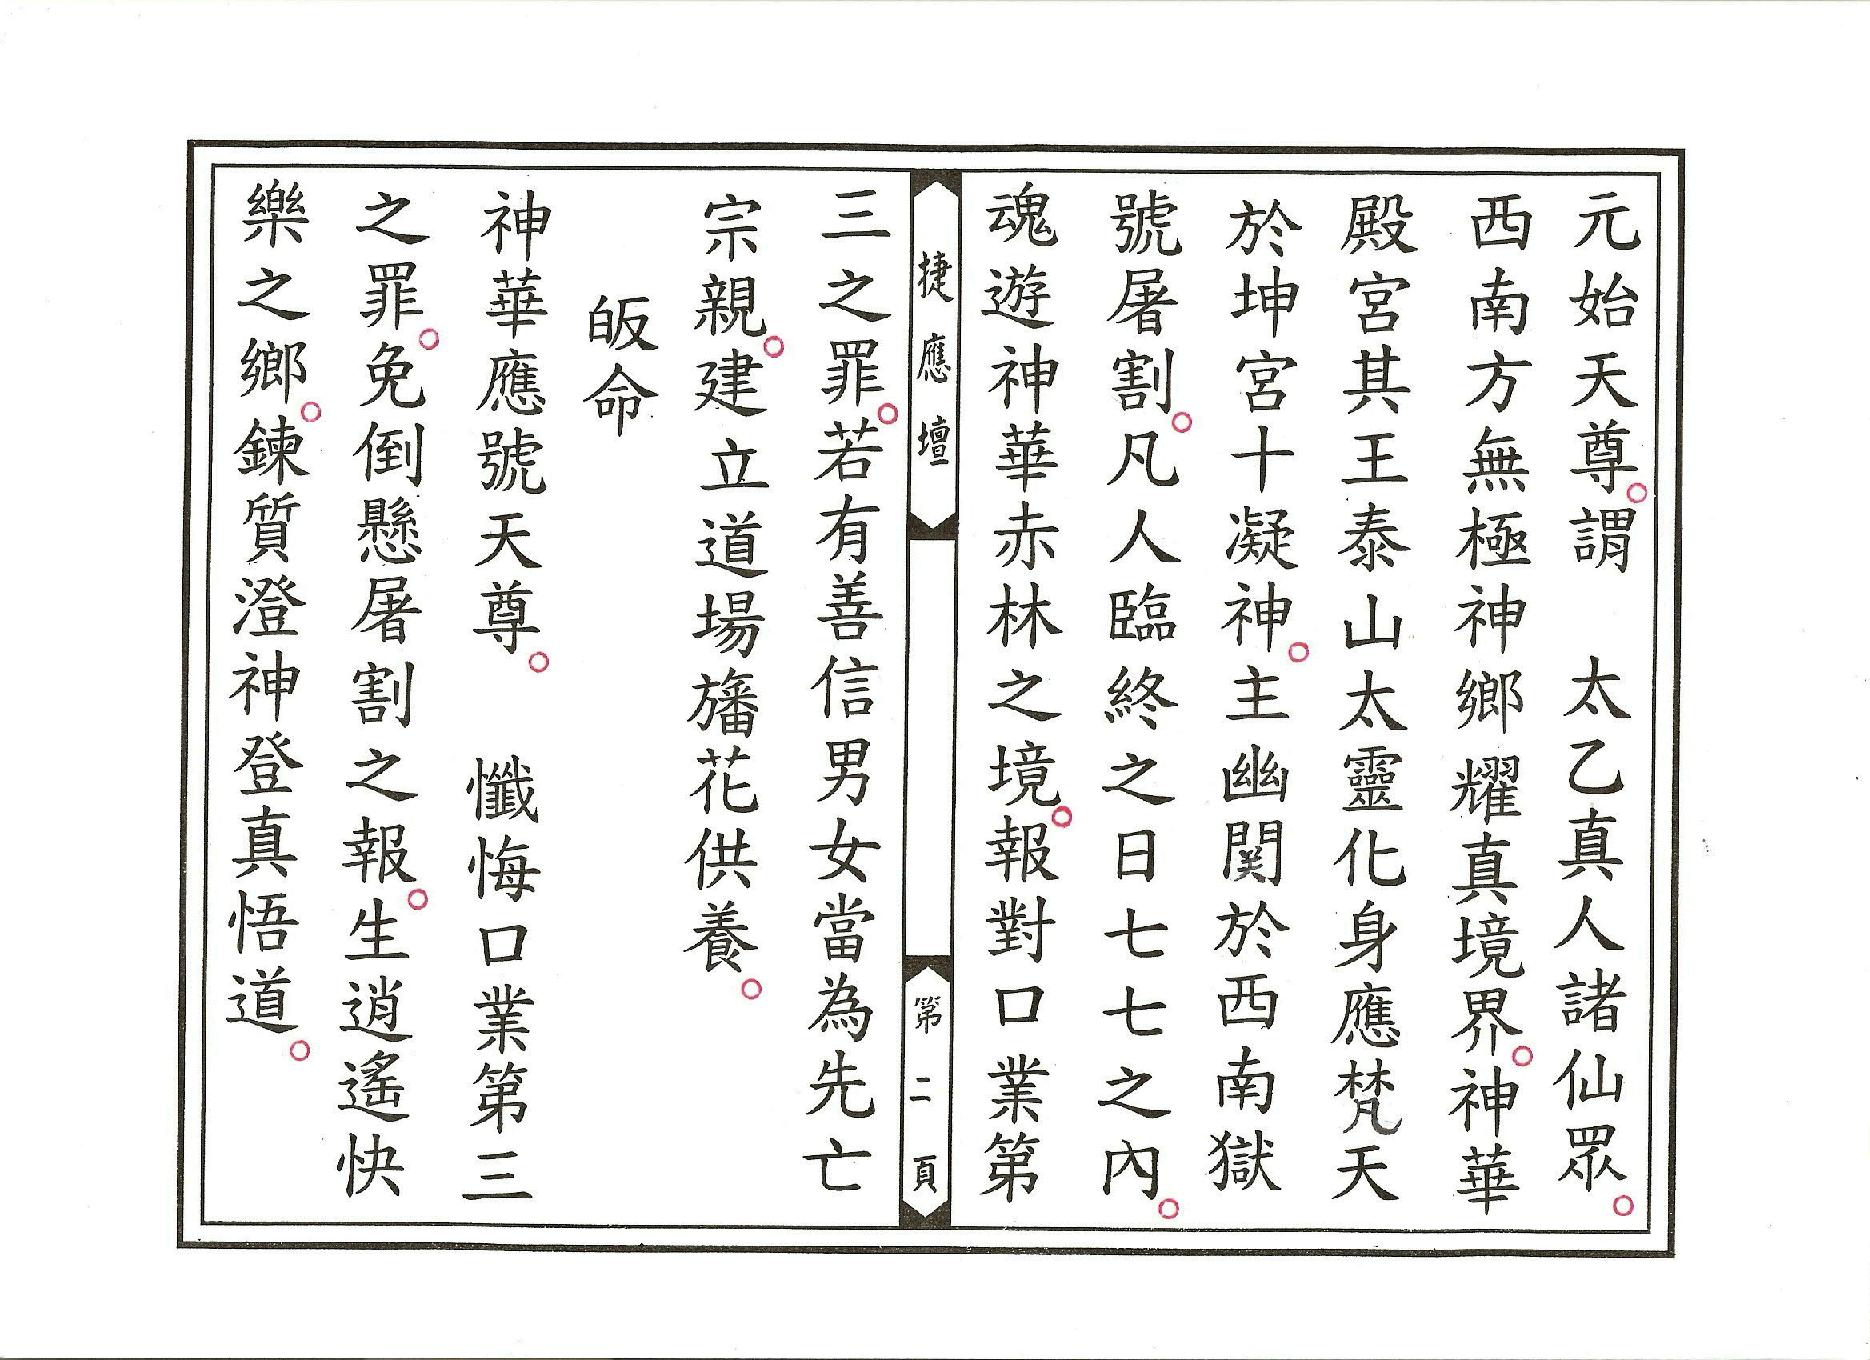 元始天尊。謂　太乙真人諸仙眾。
西南方無極神鄉耀真境界。神華
殿宮其王泰山太靈化身應梵天
於坤宮十凝神。主幽関於西南獄
號屠割。凡人臨終之日七七之內。
魂遊神華赤林之境。報對口業第
捷應壇
第二頁
三之罪。若有善信男女當為先亡
宗親。建立道場旛花供養。
皈命
神華應號天尊。　懺悔口業第三
之罪。免倒懸屠割之報。生逍遙快
樂之鄉。鍊質澄神登真悟道。